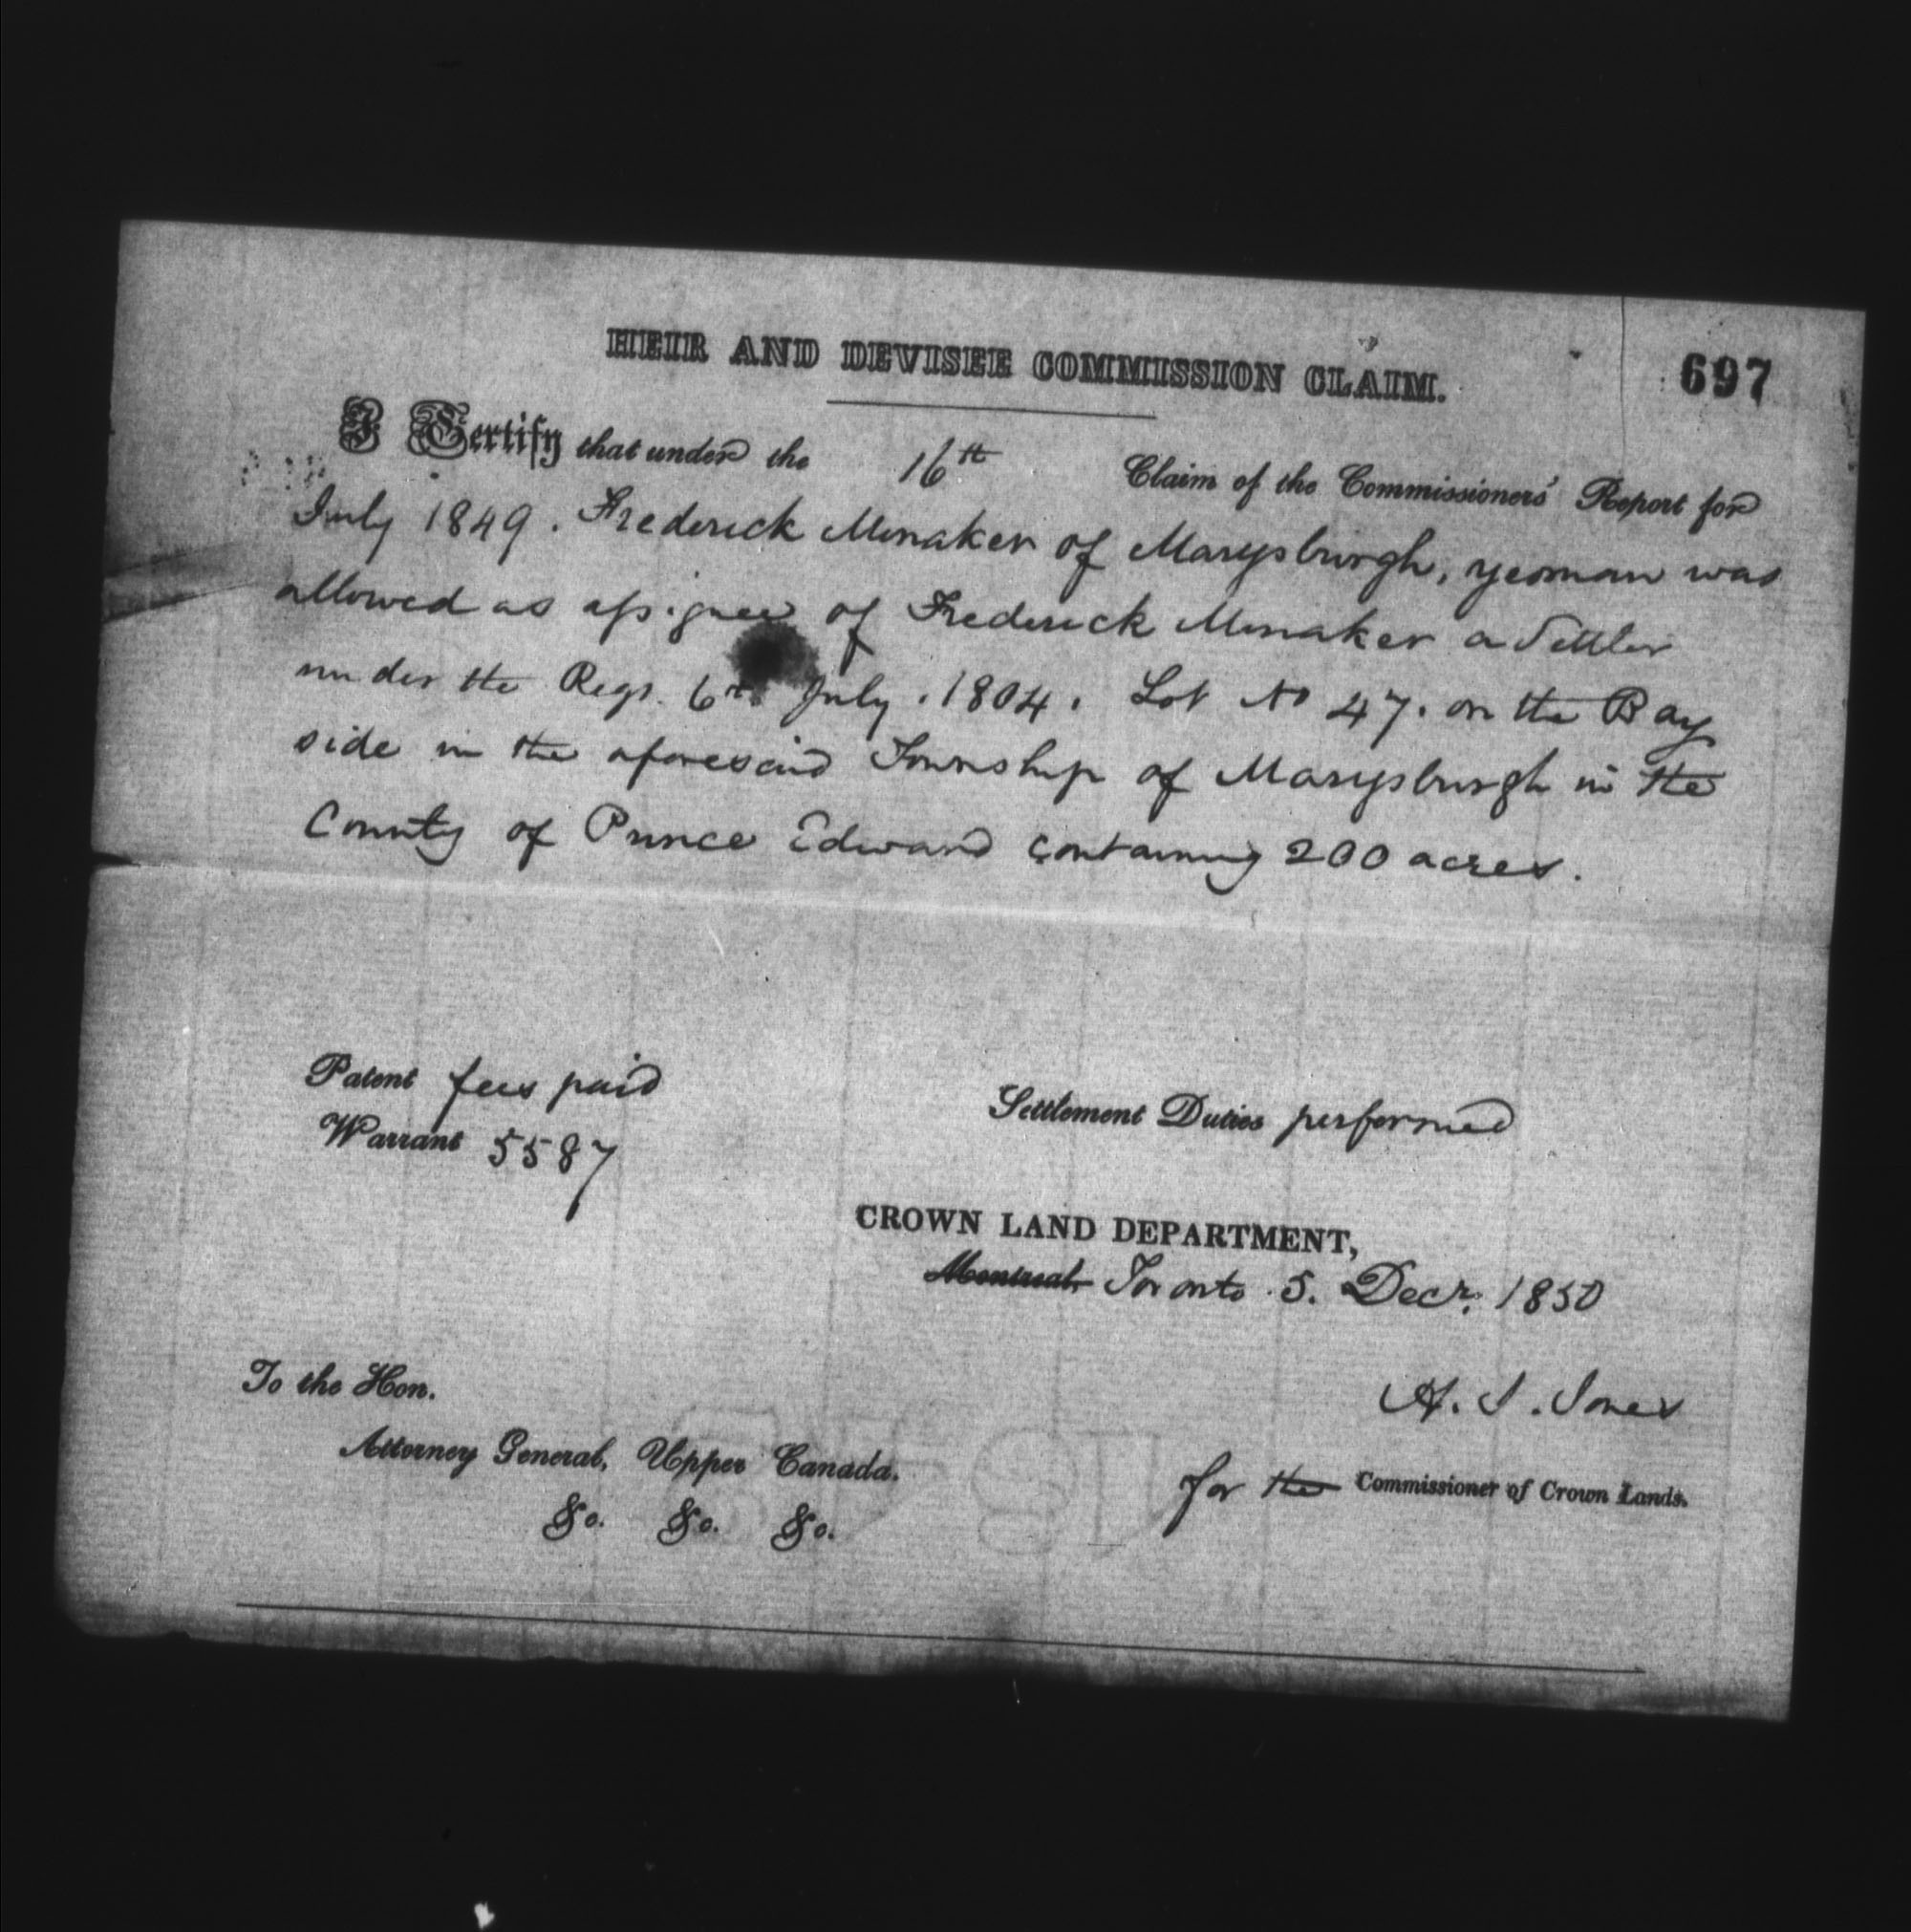 HEIR AND DEVISEE COMMISSION CLAIM. 697
I Certify that under the 16th Claim of the Commissioners' Report for
July 1849. Frederick Minaker of Marysburgh, yeoman was
allowed as assignee of Frederick Minaker a Settler
under the Regs. 6th July. 1804. Lot No 47. on the Bay
side in the aforesaid Township of Marysburgh in the
County of Prince Edward containing 200 acres.
Patent fees paid
Warrant 5587
Settlement Duties performed
CROWN LAND DEPARTMENT,
Montreal, Toronto 5. Decr. 1850
To the Hon.
Attorney General, Upper Canada.
&c. &c. &c.
A. J. Jones
for the Commissioner of Crown Lands.